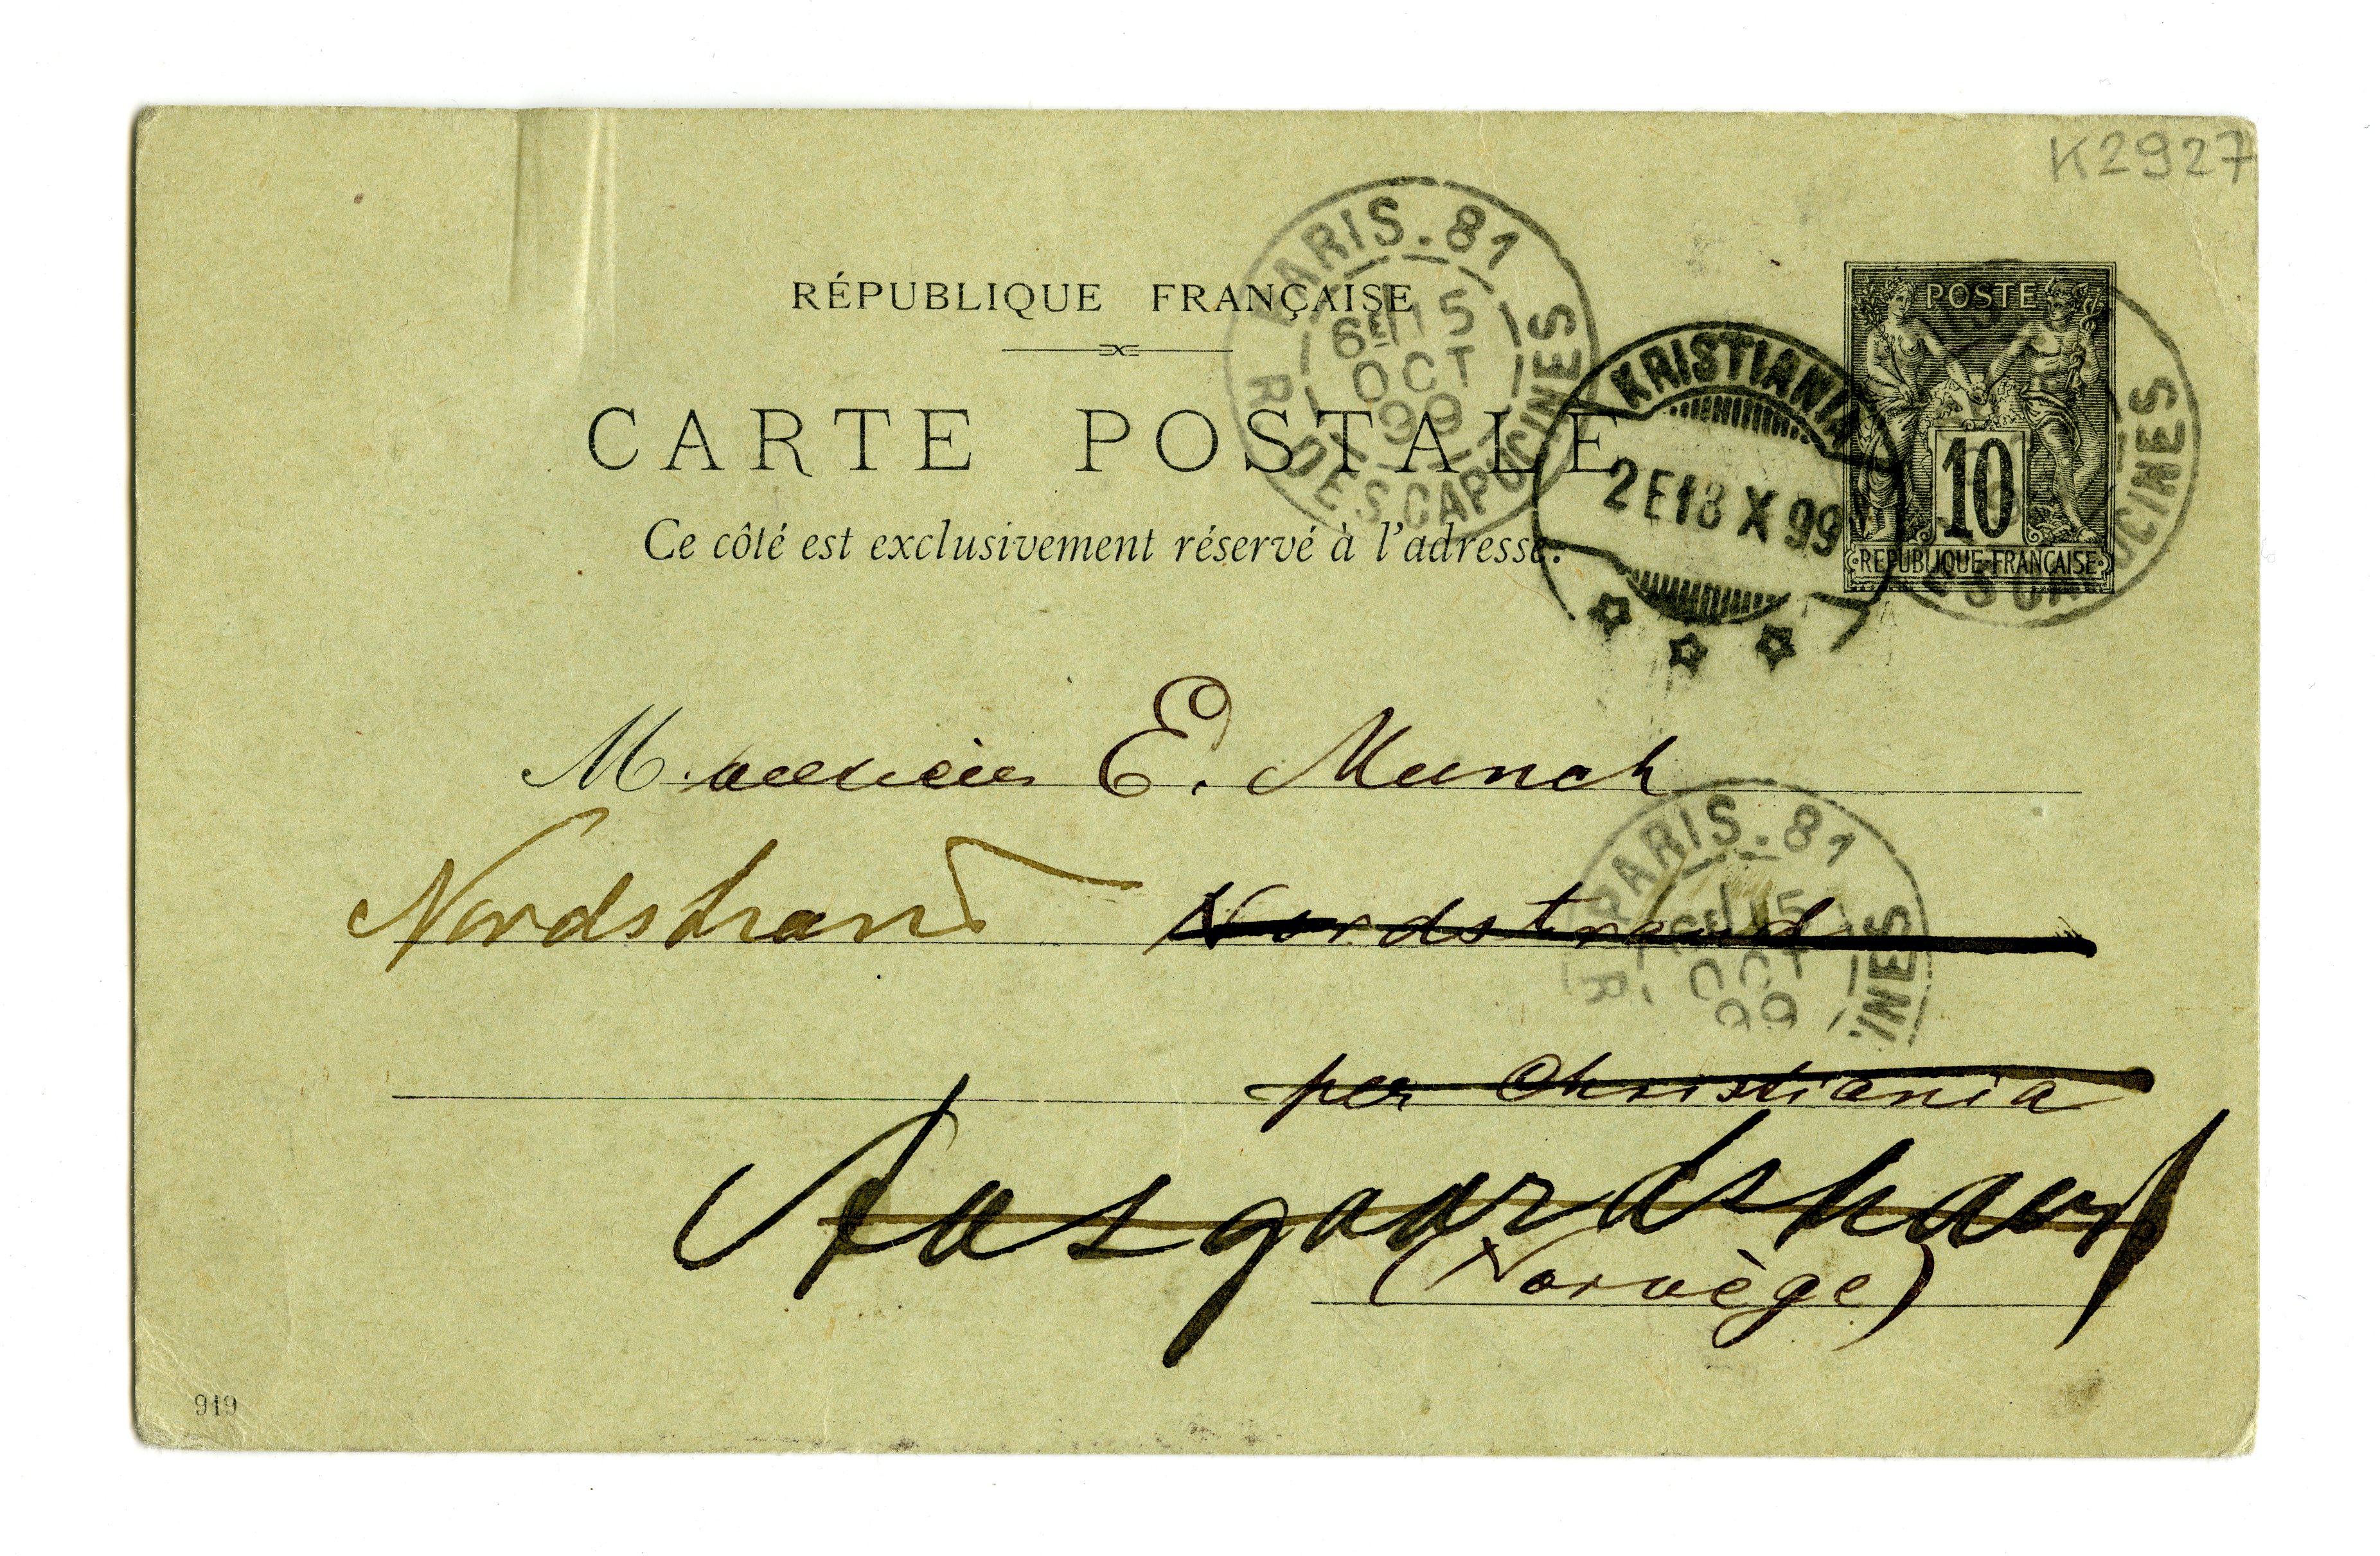 K2927
RÉPUBLIQUE FRANÇAISE
CARTE POSTALE
Ce côté est exclusivement réservé à l'adresse.
PARIS.81
6E 15
OCT
99
R. DES CAPUCINES
KRISTIANIA
2E18 X 99
POSTE
10
REPUBLIQUE FRANCAISE
CINES
Monsieur E. Munch
Nordstrand Nordstrand
PARIS.81
6E 15
OCT
99
R INES
per Christiania
Aasgaardstrand
(Norvège)
919